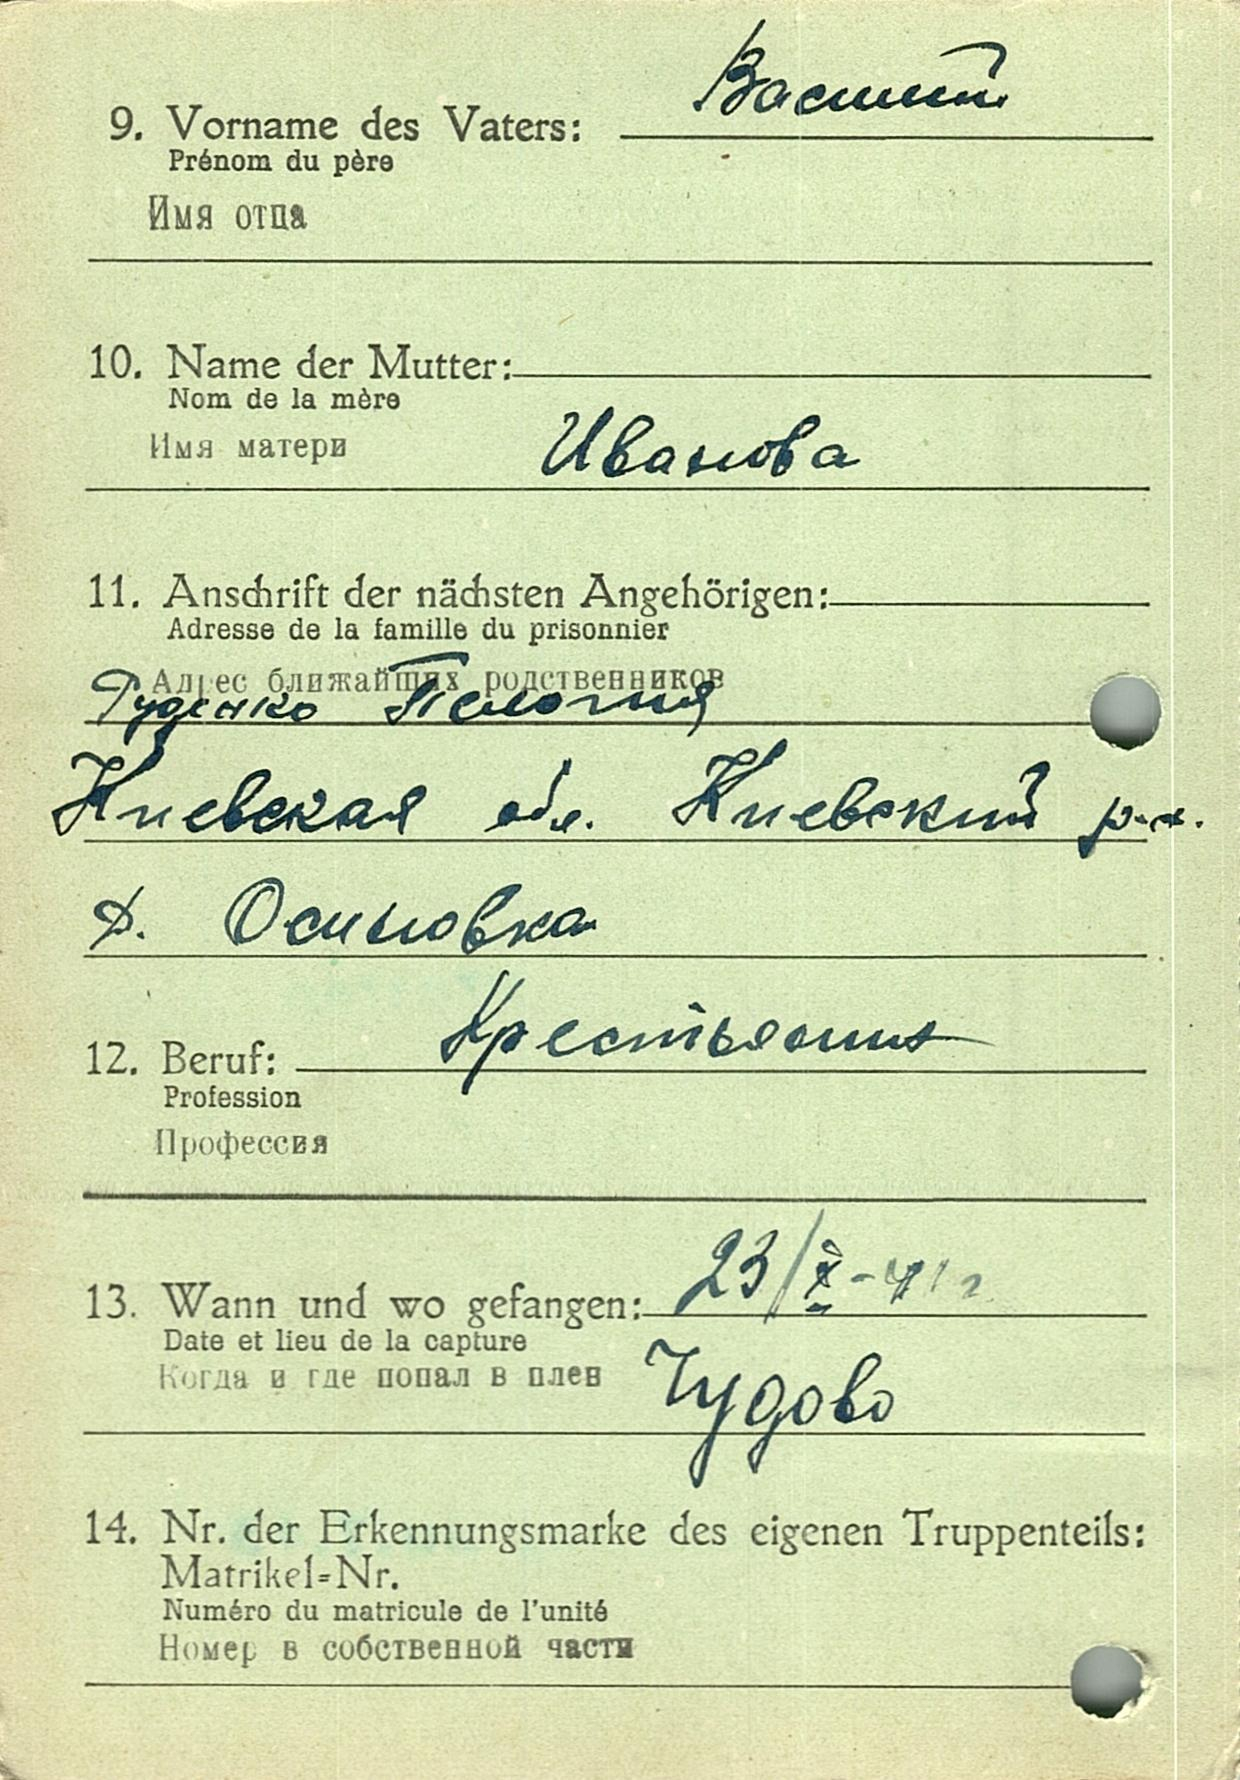 9. Vorname des Vaters: Василий
Prénom du père
Имя отца
10. Name der Mutter:
Nom de la mère
Имя матери Иванова
11. Anschrift der nächsten Angehörigen:
Adresse de la famille du prisonnier
Адрес ближайших родственников
Руденко Пелогия
Киевская обл. Киевский р-н.
д. Осиповка
12. Beruf: Крестьянин
Profession
Профессия
13. Wann und wo gefangen: 23/X-41 г
Date et lieu de la capture
Когда и где попал в плен Чудово
14. Nr. der Erkennungsmarke des eigenen Truppenteils:
Matrikel=Nr.
Numéro du matricule de l'unité
Номер в собственной части